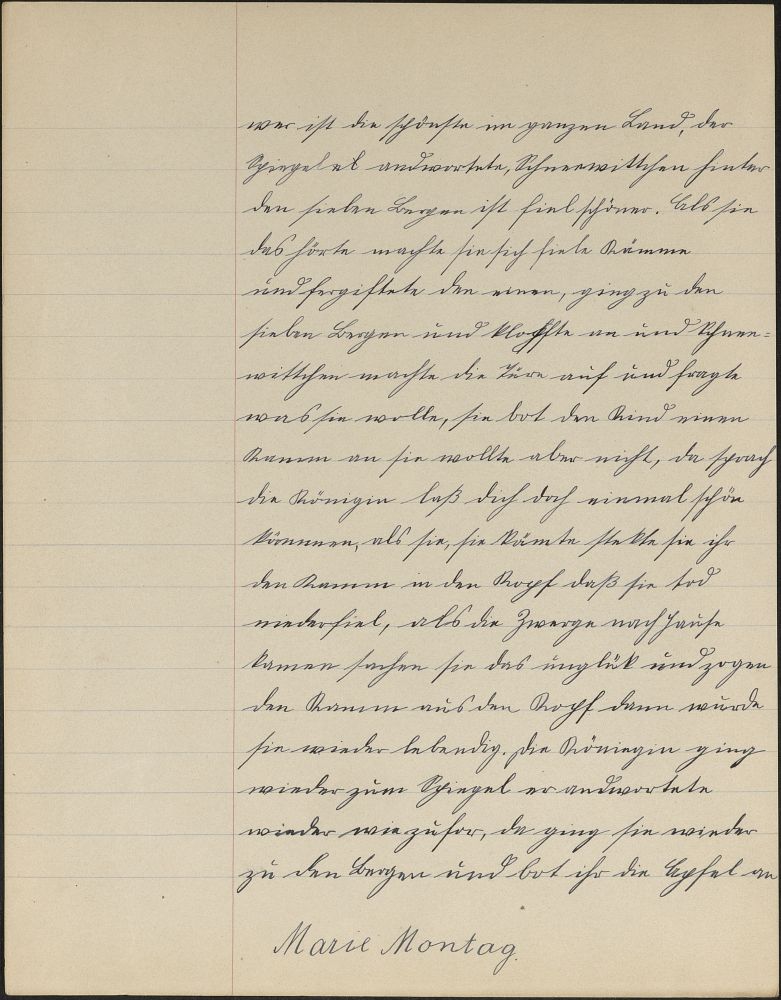 wer ist die schönste im ganzen Land, der
Spiegel al andwortete, Schneewittchen hinter
den sieben Bergen ist fiel schöner. Als sie
das hörte machte sie sich fiele Kämme
und fergiftete den einen, ging zu den
sieben Bergen und klopfte an und Schnee=
wittchen machte die Türe auf und fragte
was sie wolle, sie bot den Kind einen
Kamm an sie wollte aber nicht, da sprach
die Königin laß dich doch einmal schön
kämmen, als sie, sie kämte stekte sie ihr
den Kamm in den Kopf daß sie tod
niederfiel, als die Zwerge nach Hause
kamen sachen sie das unglük und zogen
den Kamm aus den Kopf dann wurde
sie wieder lebendig. Die Köniegin ging
wieder zum Spiegel er andwortete
wieder wie zufor, da ging sie wieder
zu den Bergen und bot ihr die Äpfel an
Marie Montag.